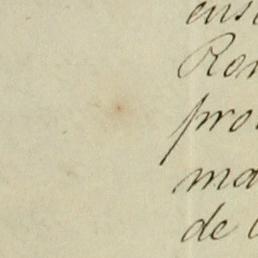 ens
Ron
pro
ma
de